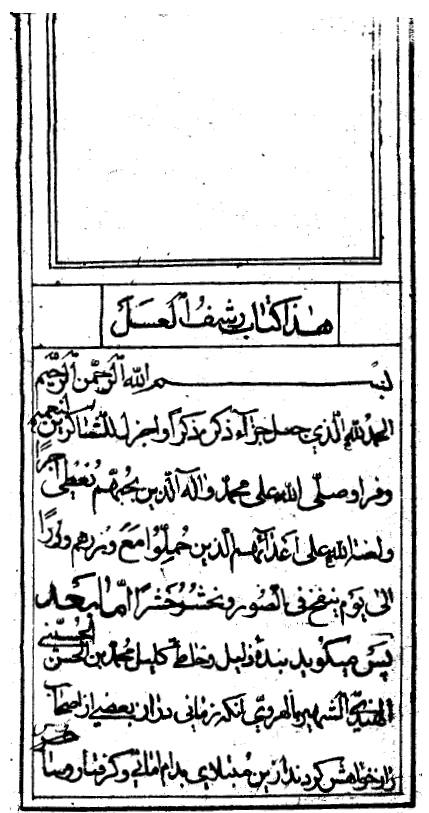 هذا كتاب رشف العسل
بسم الله الرحمن الرحيم
الحمد لله الذي جعل جزاء ذكره ذكرا واجزل للشاكرين
وفرا وصلى الله على محمد واله الذين بحبهم نعطى اجرا
ولعنة الله على اعدائهم الذين حملوا مع وزرهم وزرا
الى يوم ينفخ فى الصور ونحشر حشرا اما بعد
پس ميكويد بنده ذليل وخاطئ كليل محمد بن الحسن الحسينى
الشهير بالهروي انكه زمانى در ان بعضي از اصحاب
خواهش كردند از ين مبتلاي بدام امانى وكرفتار